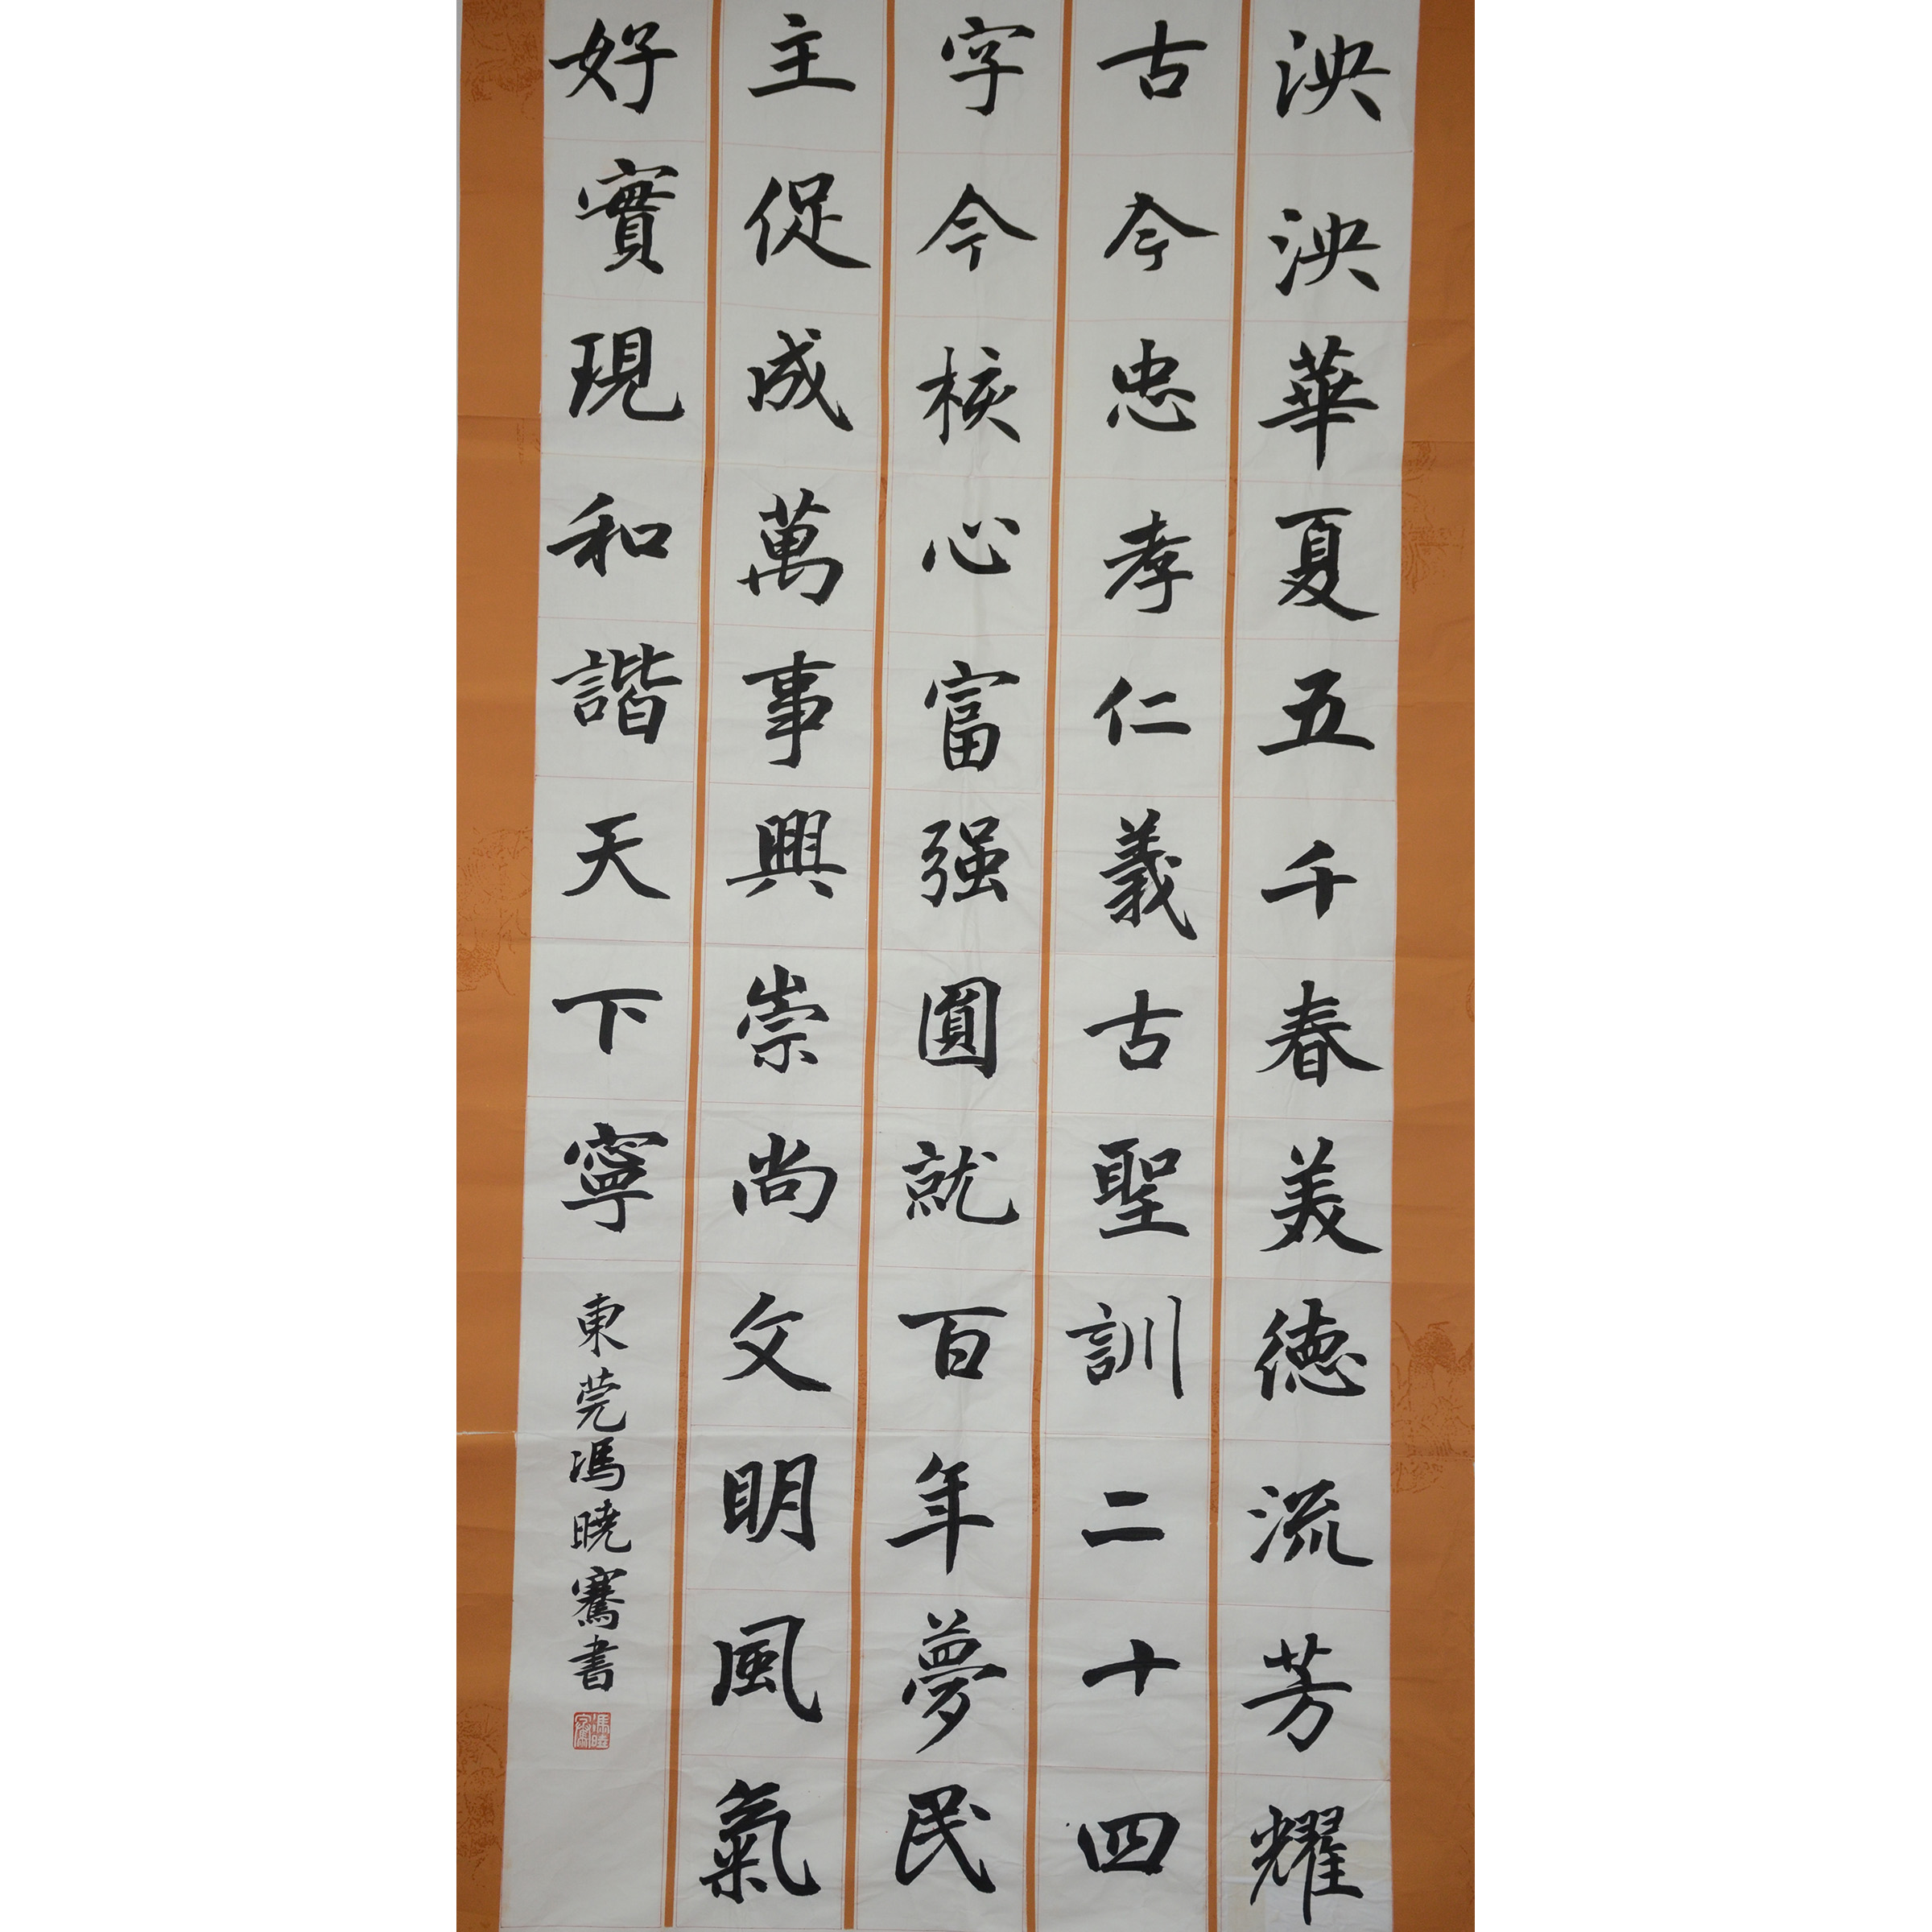 泱泱華夏五千春美德流芳耀
古今忠孝仁義古聖訓二十四
字今核心富强圓就百年夢民
主促成萬事興崇尚文明風氣
好實現和諧天下寧
東莞馮曉騫書